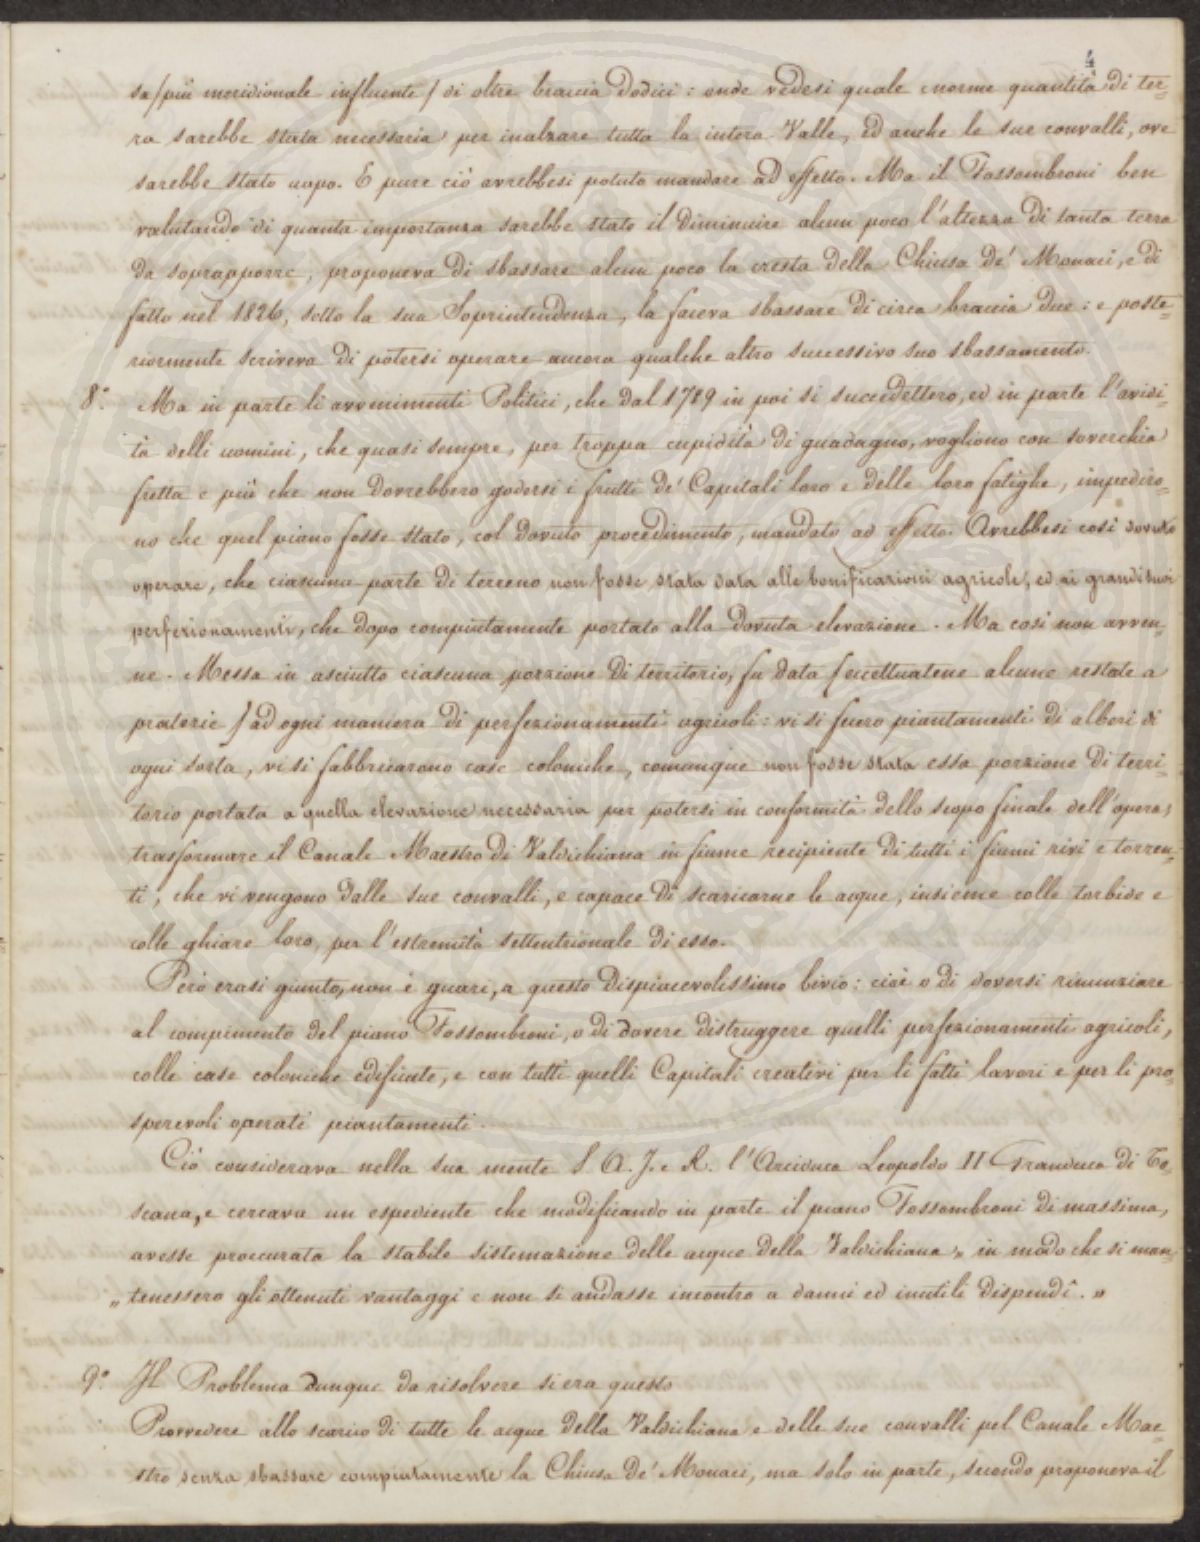 4
sa (più meridionale influente) di oltre braccia Dodici: onde vedesi quale enorme quantità di ter=
ra sarebbe stata necessaria per inalzare tutta la intera Valle, ed anche le sue convalli, ove
sarebbe stato uopo. E pure ciò avrebbesi potuto mandare ad effetto. Ma il Fossombroni ben
valutando di quanta importanza sarebbe stato il diminuire alcun poco l'altezza di tanta terra
da soprapporre, proponeva di sbassare alcun poco la cresta della Chiusa de' Monaci, e di
fatto nel 1826, sotto la sua Soprintendenza, la faceva sbassare di circa braccia due: e poste=
riormente scriveva di potersi operare ancora qualche altro successivo suo sbassamento.
8.° Ma in parte li avvenimenti Politici, che dal 1789 in poi si succedettero, ed in parte l'avidi=
tà delli uomini, che quasi sempre, per troppa cupidità di guadagno, vogliono con soverchia
fretta e più che non dovrebbero godersi i frutti de' Capitali loro e delle loro fatighe, impediro=
no che quel piano fosse stato, col dovuto procedimento, mandato ad effetto. Avrebbesi così dovuto
operare, che ciascuna parte di terreno non fosse stata data alle bonificazioni agricole, ed ai grandi suoi
perfezionamenti, che dopo compiutamente portato alla dovuta elevazione. Ma così non avven=
ne. Messa in asciutto ciascuna porzione di territorio, fu data (eccettuatene alcune restate a
praterie) ad ogni maniera di perfezionamenti agricoli: vi si fecero piantamenti di alberi di
ogni sorta, vi si fabbricarono case coloniche, comunque non fosse stata essa porzione di terri=
torio portata a quella elevazione necessaria per potersi in conformità dello scopo finale dell'opera,
trasformare il Canale Maestro di Valdichiana in fiume recipiente di tutti i fiumi rivi e torren=
ti, che vi vengono dalle sue convalli, e capace di scaricarne le acque, insieme colle torbide e
colle ghiare loro, per l'estremità settentrionale di esso.
Però erasi giunto, non è guari, a questo dispiacevolissimo bivio: cioè o di doversi rinunziare
al compimento del piano Fossombroni, o di dovere distruggere quelli perfezionamenti agricoli,
colle case coloniche edificate, e con tutti quelli Capitali creativi per li fatti lavori e per li pro=
sperevoli operati piantamenti.
Ciò considerava nella sua mente S. A. I. e R. l'Arciduca Leopoldo II Granduca di To=
scana, e cercava un espediente che modificando in parte il piano Fossombroni di massima,
avesse procurata la stabile sistemazione delle acque della Valdichiana „ in modo che si man=
„ tenessero gli ottenuti vantaggi e non si andasse incontro a danni ed inutili dispendî. „
9.° Il Problema dunque da risolvere si era questo
Provvedere allo scarico di tutte le acque della Valdichiana e delle sue convalli pel Canale Mae=
stro senza sbassare compiutamente la Chiusa de' Monaci, ma solo in parte, secondo proponeva il